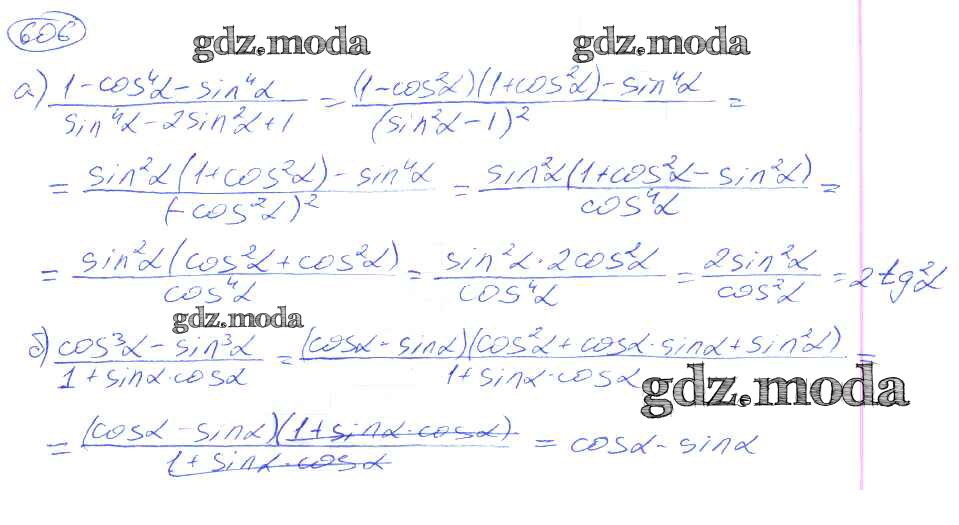 606
gdz.moda gdz.moda
а) (1-cos⁴α-sin⁴α)/(sin⁴α-2sin²α+1) = ((1-cos²α)(1+cos²α)-sin⁴α)/(sin²α-1)² =
= (sin²α(1+cos²α)-sin⁴α)/(-cos²α)² = (sin²α(1+cos²α-sin²α))/cos⁴α =
= (sin²α(cos²α+cos²α))/cos⁴α = (sin²α·2cos²α)/cos⁴α = 2sin²α/cos²α = 2tg²α
gdz.moda
б) (cos³α-sin³α)/(1+sinα·cosα) = ((cosα-sinα)(cos²α+cosα·sinα+sin²α))/(1+sinα·cosα) =
gdz.moda
= ((cosα-sinα)(1+sinα·cosα))/(1+sinα·cosα) = cosα-sinα